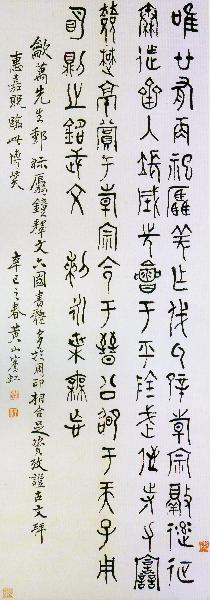 唯廿又再祀驫羌乍戎氒辟韓宗敲達征
秦迮齊入長城先會于平陰武侄寺力
敚楚京賞于韓宗令于晉公卲于天子用
明則之銘武文 剌永枼毋忘
蕭先生郵眎屬鐘釋文六國書體多於周印相合足資攷證古文拜
惠嘉貺臨此博笑 辛巳之春黃山賓虹